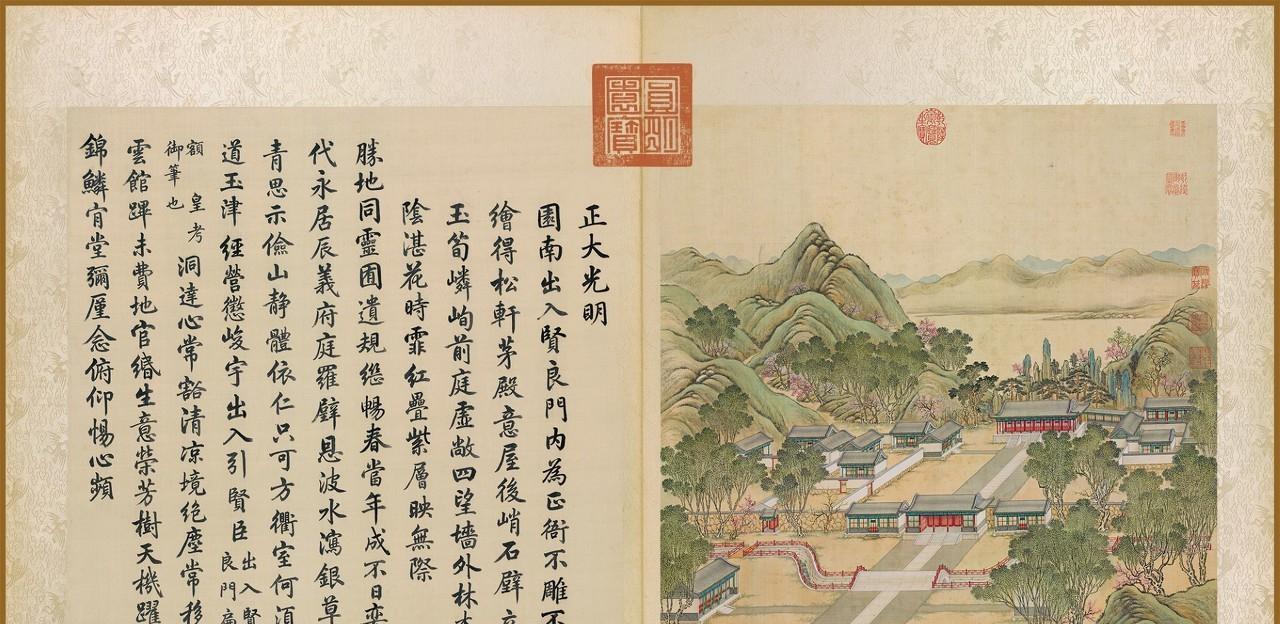 圓明園寶
正大光明
園南出入賢良門內為正衙不雕不
繪得松軒茅殿意屋後峭石壁
玉筍嶙峋前庭虛敞四望墻外林
陰湛花時霏紅疊紫層映無際
勝地同靈囿遺規繼暢春當年成不日奕
代永居辰義府庭羅壁恩波水瀉銀草
青思示儉山静體依仁只可方衢室何湏
道玉津經營懲峻宇出入引賢臣出入賢良門扁
額皇考御筆也洞達心常豁清凉境絕塵常移
雲館蹕未費地官緡生意榮芳樹天機躍
錦鱗肯堂彌厪念俯仰惕心頻